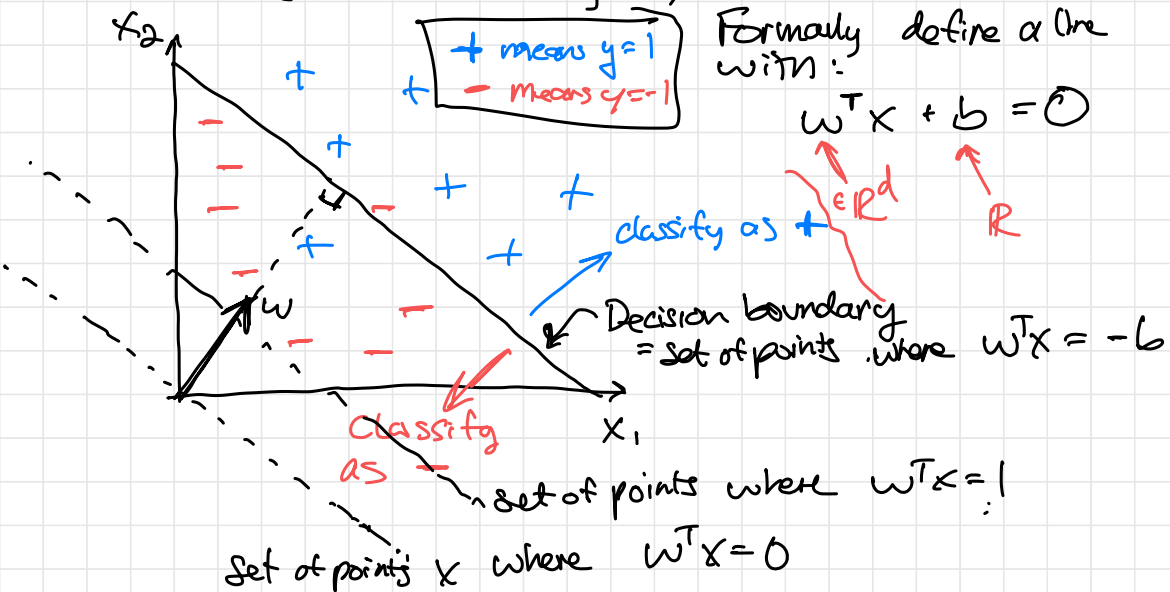 x₂
+ means y=1
- means y=-1
Formally define a line
with:
wᵀx + b = 0
∈ ℝᵈ
ℝ
classify as +
w
Decision boundary
= set of points where wᵀx = -b
x₁
Classify
as -
set of points where wᵀx = 1
set of points x where wᵀx = 0